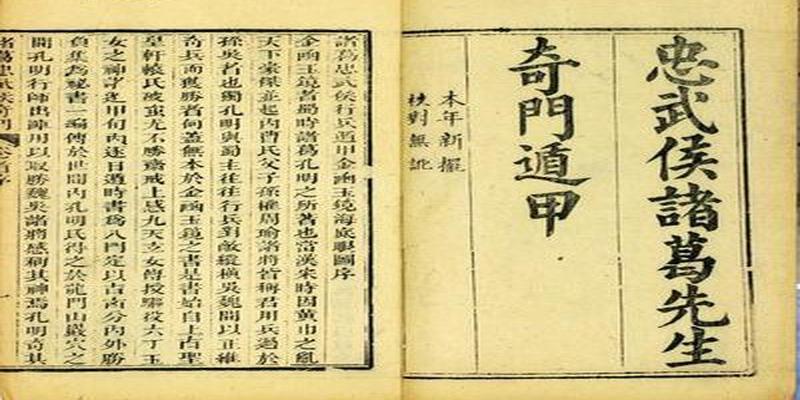 忠武侯諸葛先生
奇門遁甲
本年新握
校對無訛
諸葛忠武侯行兵遁甲金函玉鏡海底眼圖序
金函玉鏡者蜀時諸葛孔明之所著也當漢末時因黃巾之亂
天下豪傑並起內曹氏父子孫權周瑜諸將皆稱君用兵過於
孫吳者也獨孔明與蜀主往往行兵對敵縱橫吳魏間以正維
奇兵而獲勝者何蓋無本於金函玉鏡之書是書始自上古聖
皇軒轅氏破蚩尤不勝齋戒上感九天玄女傳授驅役六丁玉
女之神訣迄甲旬內逐日遁時書爲八門定以吉凶分內外勝
負集爲秘書一編傳於世間內孔明氏得之於龍門山巖穴之
間孔明行師出陣用以取勝魏吳諸將感稱其神焉孔明奇其